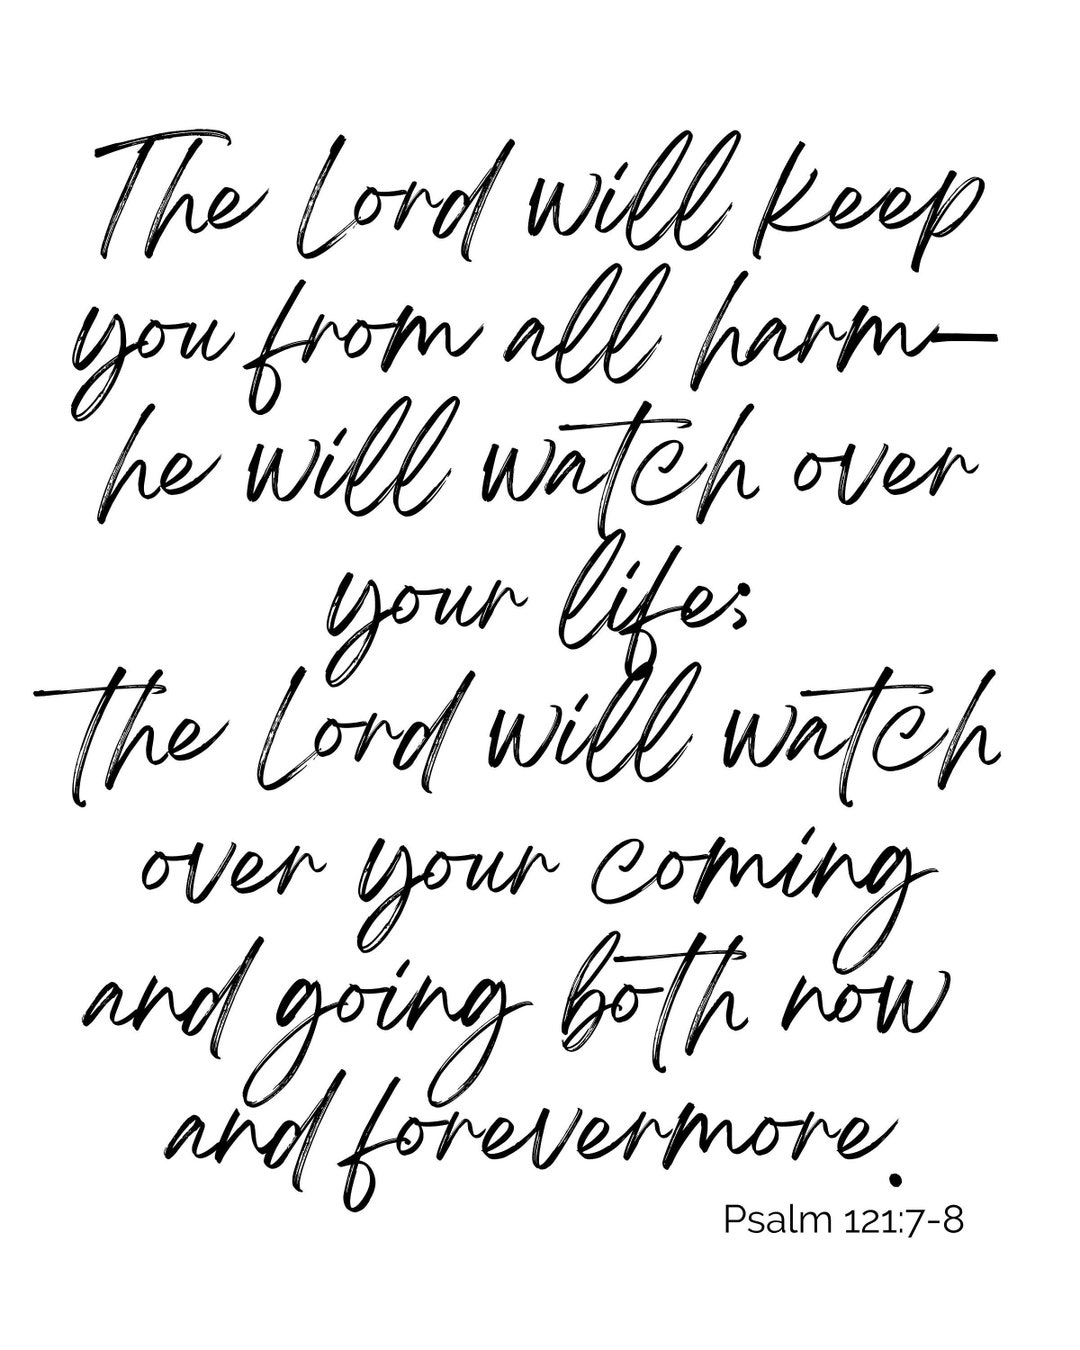 The Lord will keep
you from all harm—
he will watch over
your life;
the Lord will watch
over your coming
and going both now
and forevermore.
Psalm 121:7-8